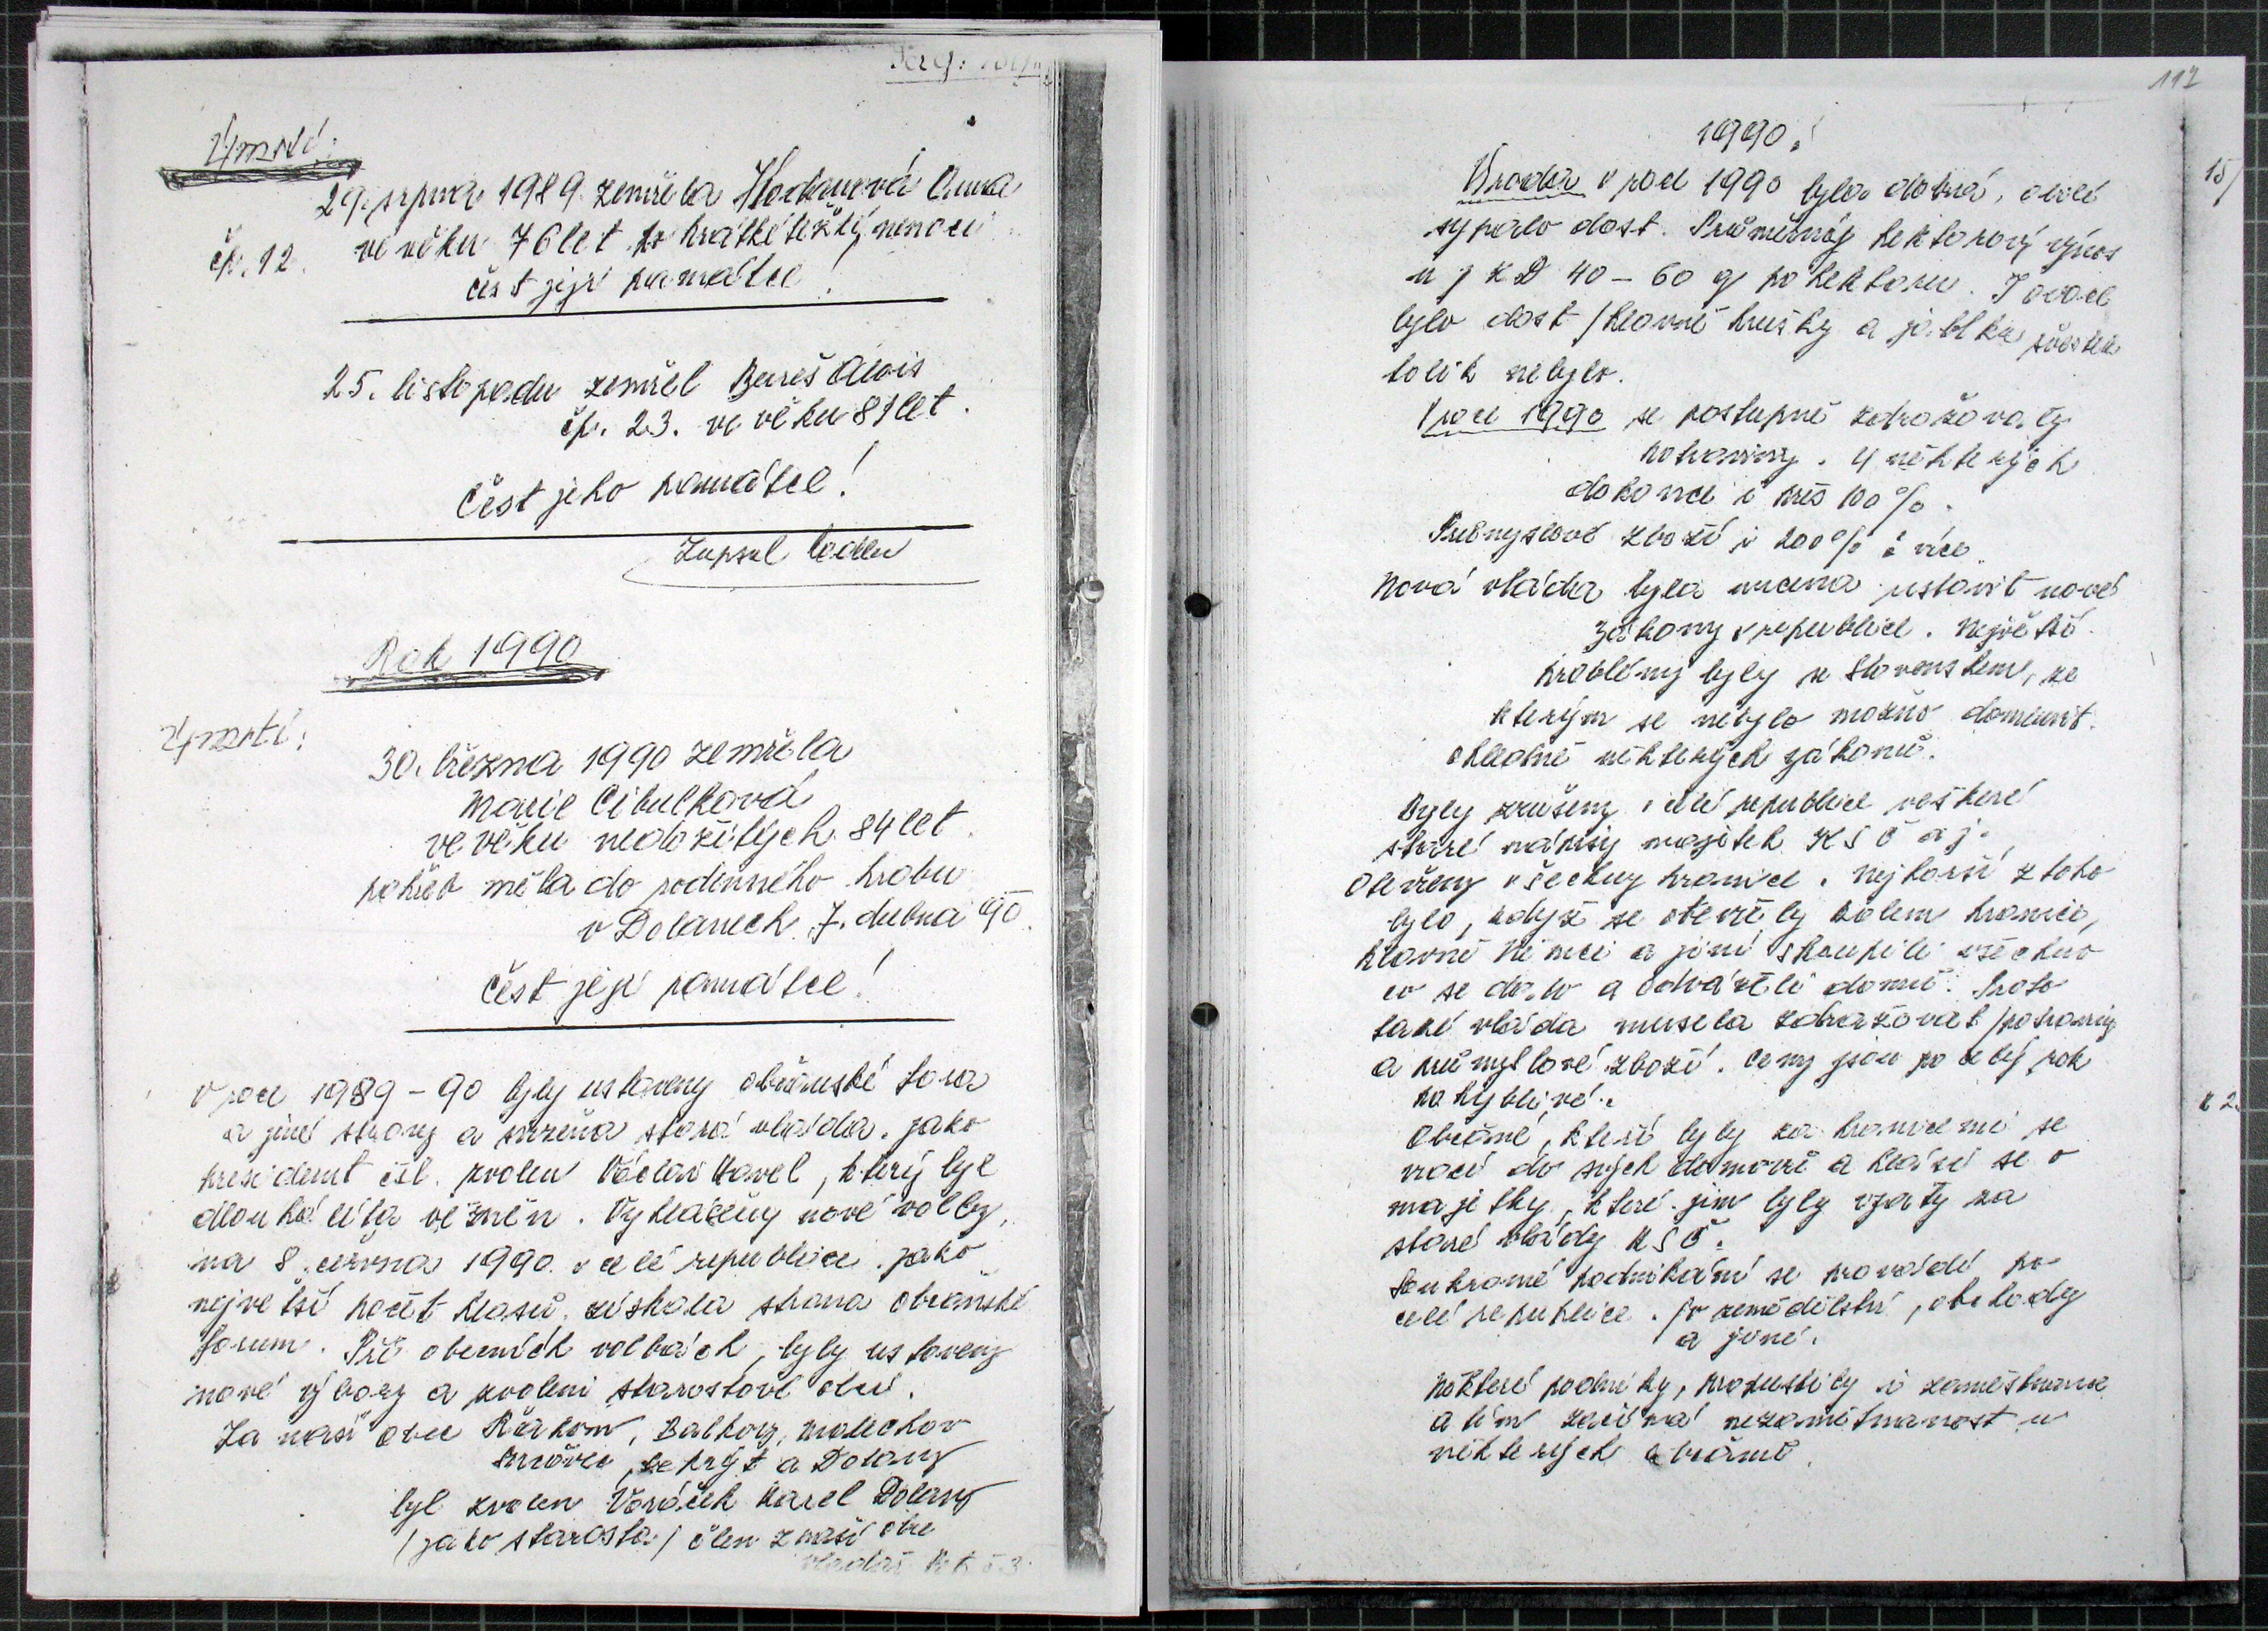 Úmrtí:
29. srpna 1989 zemřela Hodanová Anna
čp. 12. ve věku 76 let po krátké těžké nemoci
čest její památce!
25. listopadu zemřel Bureš Alois
čp. 23. ve věku 81 let.
Čest jeho památce!
Zapsal
Rok 1990
Úmrtí:
30. března 1990 zemřela
Marie Cibulková
ve věku nedožitých 84 let.
pohřeb měla do rodinného hrobu
v Dolanech 7. dubna 90.
Čest její památce!
V roce 1989-90 byly ustaveny občanské fora
a jiné strany a svržena stará vláda. jako
president čsl. zvolen Václav Havel, který byl
dlouhá léta vězněn. Vyhlášeny nové volby,
na 8. června 1990 v celé republice. jako
největší počet hlasů získala strana občanské
forum. Při obecních volbách, byly ustaveny
nové výbory a zvoleni starostové obcí.
Za naši obec Řákom, Balkovy, Malechov
Andělice, Sekrýt a Dolany
byl zvolen Voráček Karel Dolany
/jako starosta/ člen z naší obce
117
1990.
Úroda v roce 1990 byla dobrá, obilí
sypalo dost. Průměrný hektarový výnos
u JZD 40-60 q po hektaru. I ovoce
bylo dost /hlavně hrušky a jablka švestek
tolik nebylo.
V roce 1990 se postupně zdražovaly
potraviny. U některých
dokonce i přes 100%.
Průmyslové zboží i 200% i více
Nová vláda byla nucena ustavit nové
zákony v republice. Největší
problémy byly se Slovenskem, se
kterým se nebylo možno domluvit.
ohledně některých zákonů.
Byly zrušeny v celé republice veškeré
staré názvy majetek KSČ a j.
Otevřeny všechny hranice. Nejhorší z toho
bylo, když se otevřely kolem hranice,
hlavně Němci a jiní skoupili všechno
co se dalo a odváželi domů. Proto
také vláda musela zdražovat /potraviny
a průmyslové zboží. Ceny jsou po celý rok
pohyblivé.
Občané, kteří byly za hranicemi se
vrací do svých domovů a hlásí se o
majetky, které jim byly vzaty za
staré vlády KSČ.
Soukromé podnikání se provádí po
celé republice. /v zemědělství, obchody
a jiné.
Některé podniky, propustily i zaměstnance
a tím začíná nezaměstnanost u
některých občanů.
15/